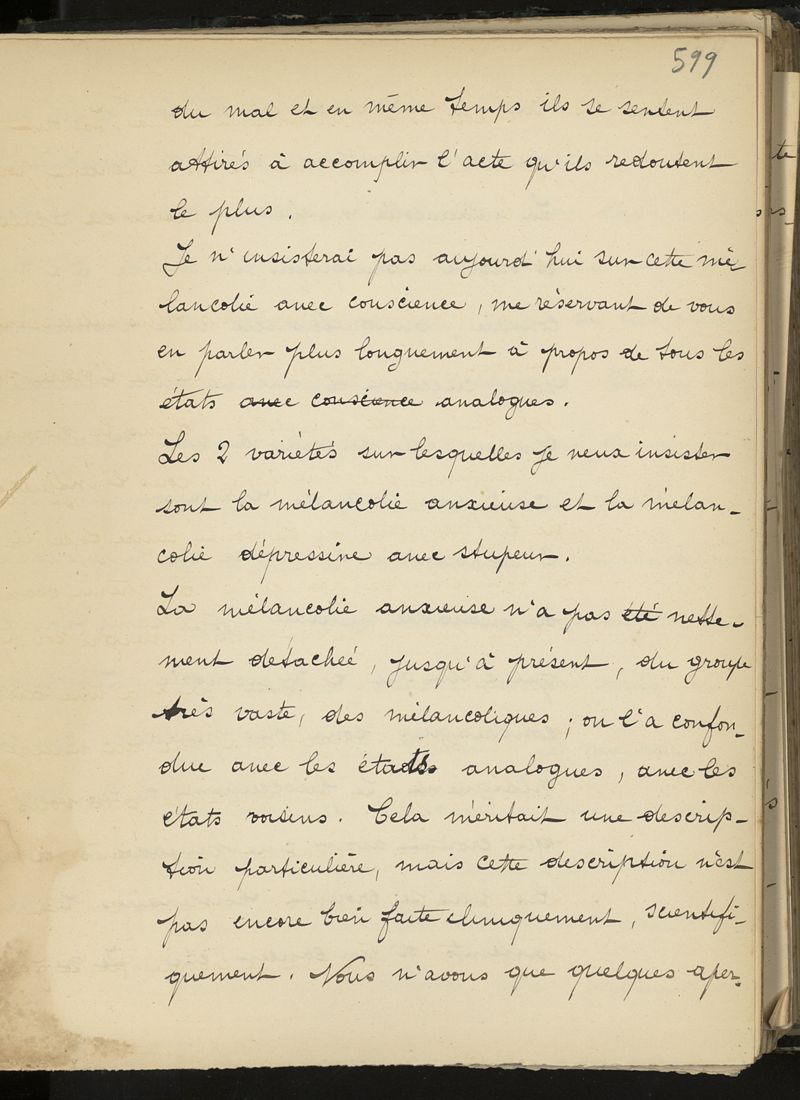 599
du mal et en même temps ils se sentent
attirés à accomplir l'acte qu'ils redoutent
le plus.
Je n'insisterai pas aujourd'hui sur cette mé-
lancolie avec conscience, me réservant de vous
en parler plus longuement à propos de tous les
états avec conscience analogues.
Les 2 variétés sur lesquelles je veux insister
sont la mélancolie anxieuse et la mélan-
colie dépressive avec stupeur.
La mélancolie anxieuse n'a pas été nette-
ment detacheé, jusqu'à présent, du groupe
très vaste, des mélancoliques ; on l'a confon-
due avec les états analogues, avec les
états voisins. Cela méritait une descrip-
tion particulière, mais cette description n'est
pas encore bien faite cliniquement, scientifi-
quement. Nous n'avons que quelques aper-